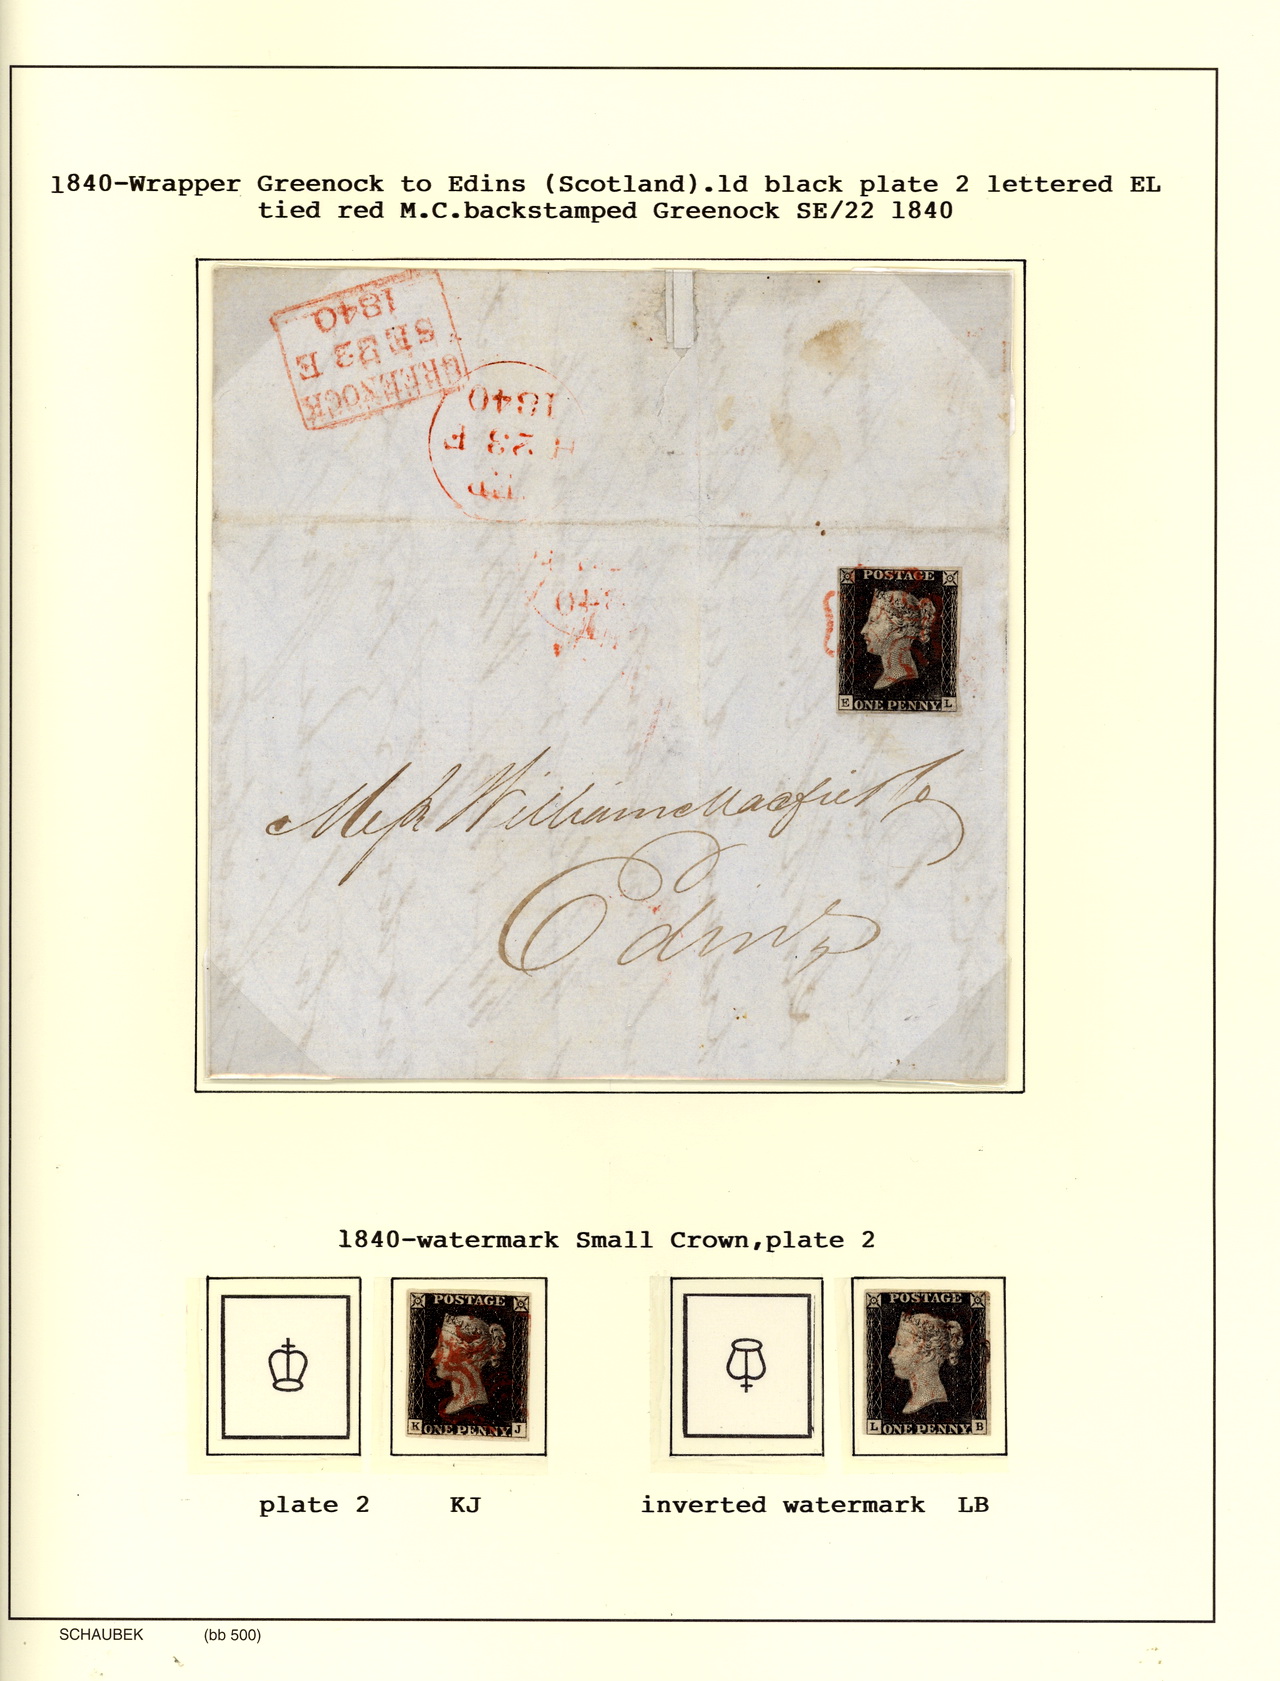 1840-Wrapper Greenock to Edins (Scotland).1d black plate 2 lettered EL
tied red M.C.backstamped Greenock SE/22 1840
GREENOCK
SE 22 E
1840
1840
23 E
1840
POSTAGE
E ONE PENNY L
Messrs William Macfie & Co
Edinr
1840-watermark Small Crown,plate 2
POSTAGE
K ONE PENNY J
POSTAGE
L ONE PENNY B
plate 2 KJ
inverted watermark LB
SCHAUBEK (bb 500)